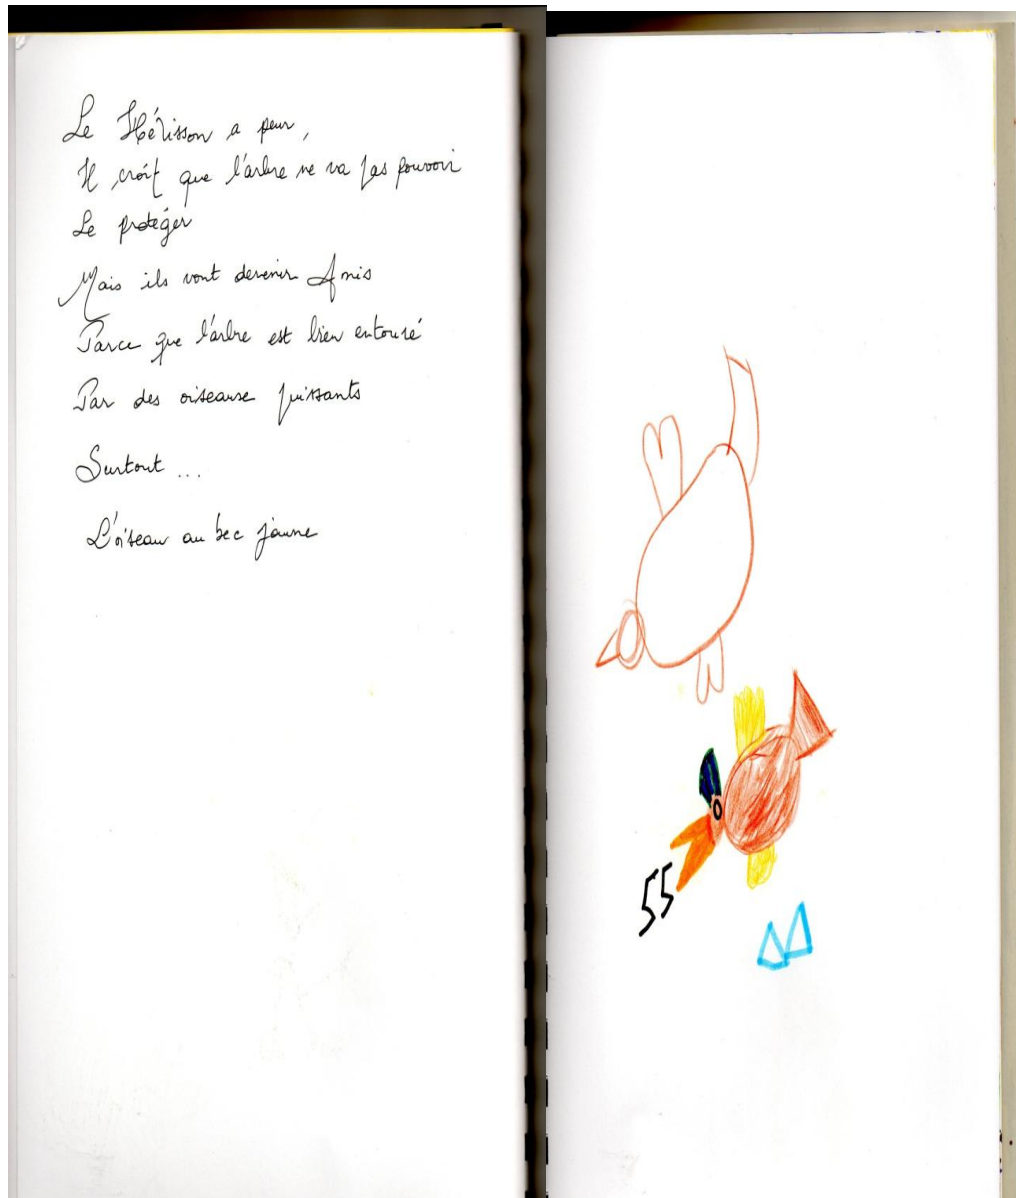 Le Hérisson a peur,
Il croît que l'arbre ne va pas pouvoir
Le protéger
Mais ils vont devenir Amis
Parce que l'arbre est bien entouré
Par des oiseause puissants
Surtout ...
L'oiseau au bec jaune
55